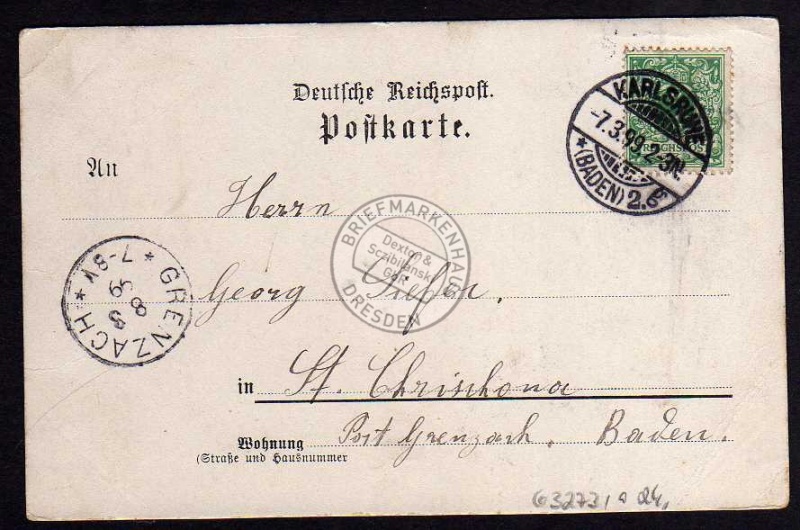 Deutsche Reichspost.
Postkarte.
REICHSPOST
KARLSRUHE
-7.3.99. 2-3N.
* (BADEN) 2.
An
Herrn
BRIEFMARKENHAUS
Dexton &
Sczibilanski
GbR
DRESDEN
* GRENZACH *
7-8V
8 3
99
Georg
in St. Chrischona
Wohnung
(Straße und Hausnummer
Post Grenzach. Baden.